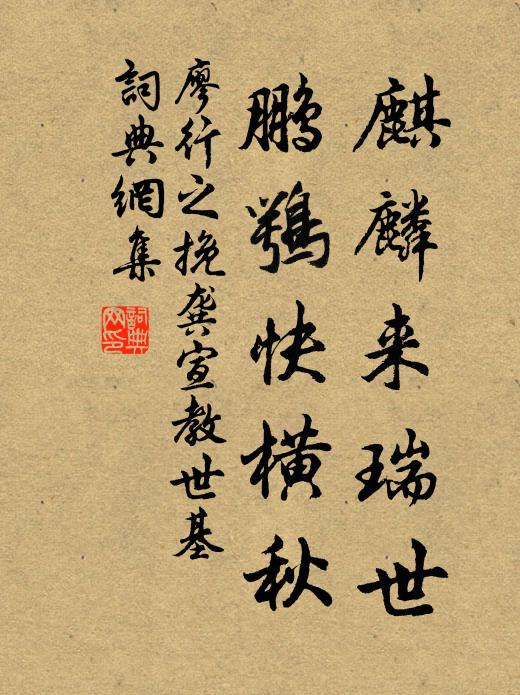 麒麟来瑞世
鹏鹗快横秋
廖行之挽龚宣教世基
詞典網集
詞典网印